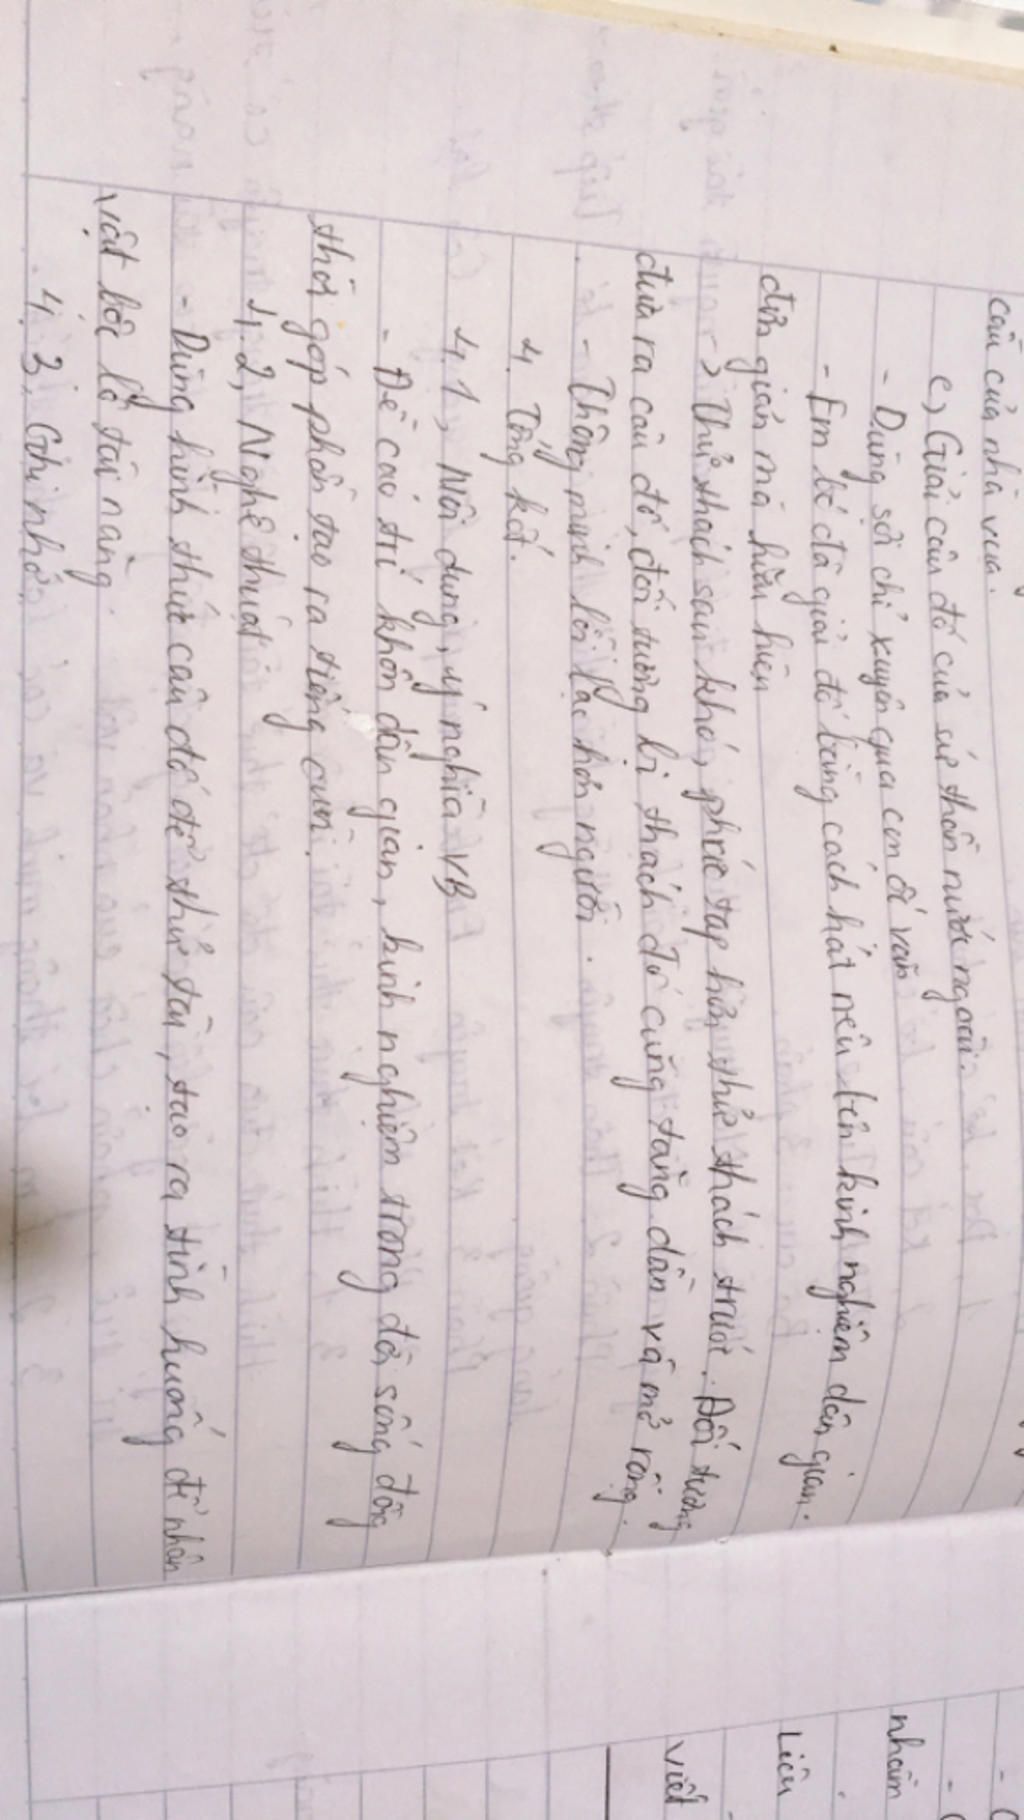 cầu của nhà vua.
c, Giải câu đố của sứ thần nước ngoài.
- Dùng sợi chỉ xuyên qua con ốc vặn
- Em bé đã giải đố bằng cách hát nêu lên kinh nghiệm dân gian.
đơn giản mà hiệu hiện
-> Thử thách sau khó, phức tạp hơn thử thách trước. Đối tượng
đưa ra câu đố, đối tượng bị thách đố cũng tăng dần và mở rộng.
- Thông minh lỗi lạc hơn người.
4. Tổng kết.
4.1, Nội dung, ý nghĩa VB
- Đề cao trí khôn dân gian, kinh nghiệm trong đời sống đồng
thời góp phần tạo ra tiếng cười.
4.2, Nghệ thuật
- Dùng hình thức câu đố để thử tài, tạo ra tình huống để nhân
vật bộc lộ tài năng.
4.3, Ghi nhớ
nhầm
Liêu
viết